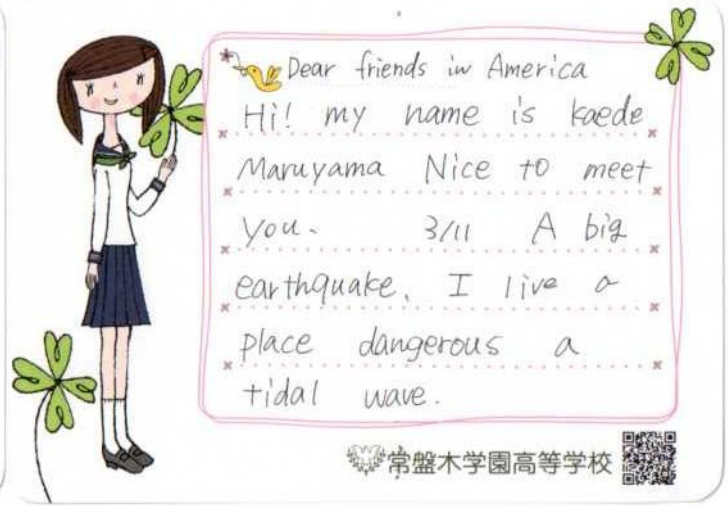 Dear friends in America
Hi! my name is kaede
Maruyama Nice to meet
you. 3/11 A big
earthquake. I live a
place dangerous a
tidal wave.
常盤木学園高等学校